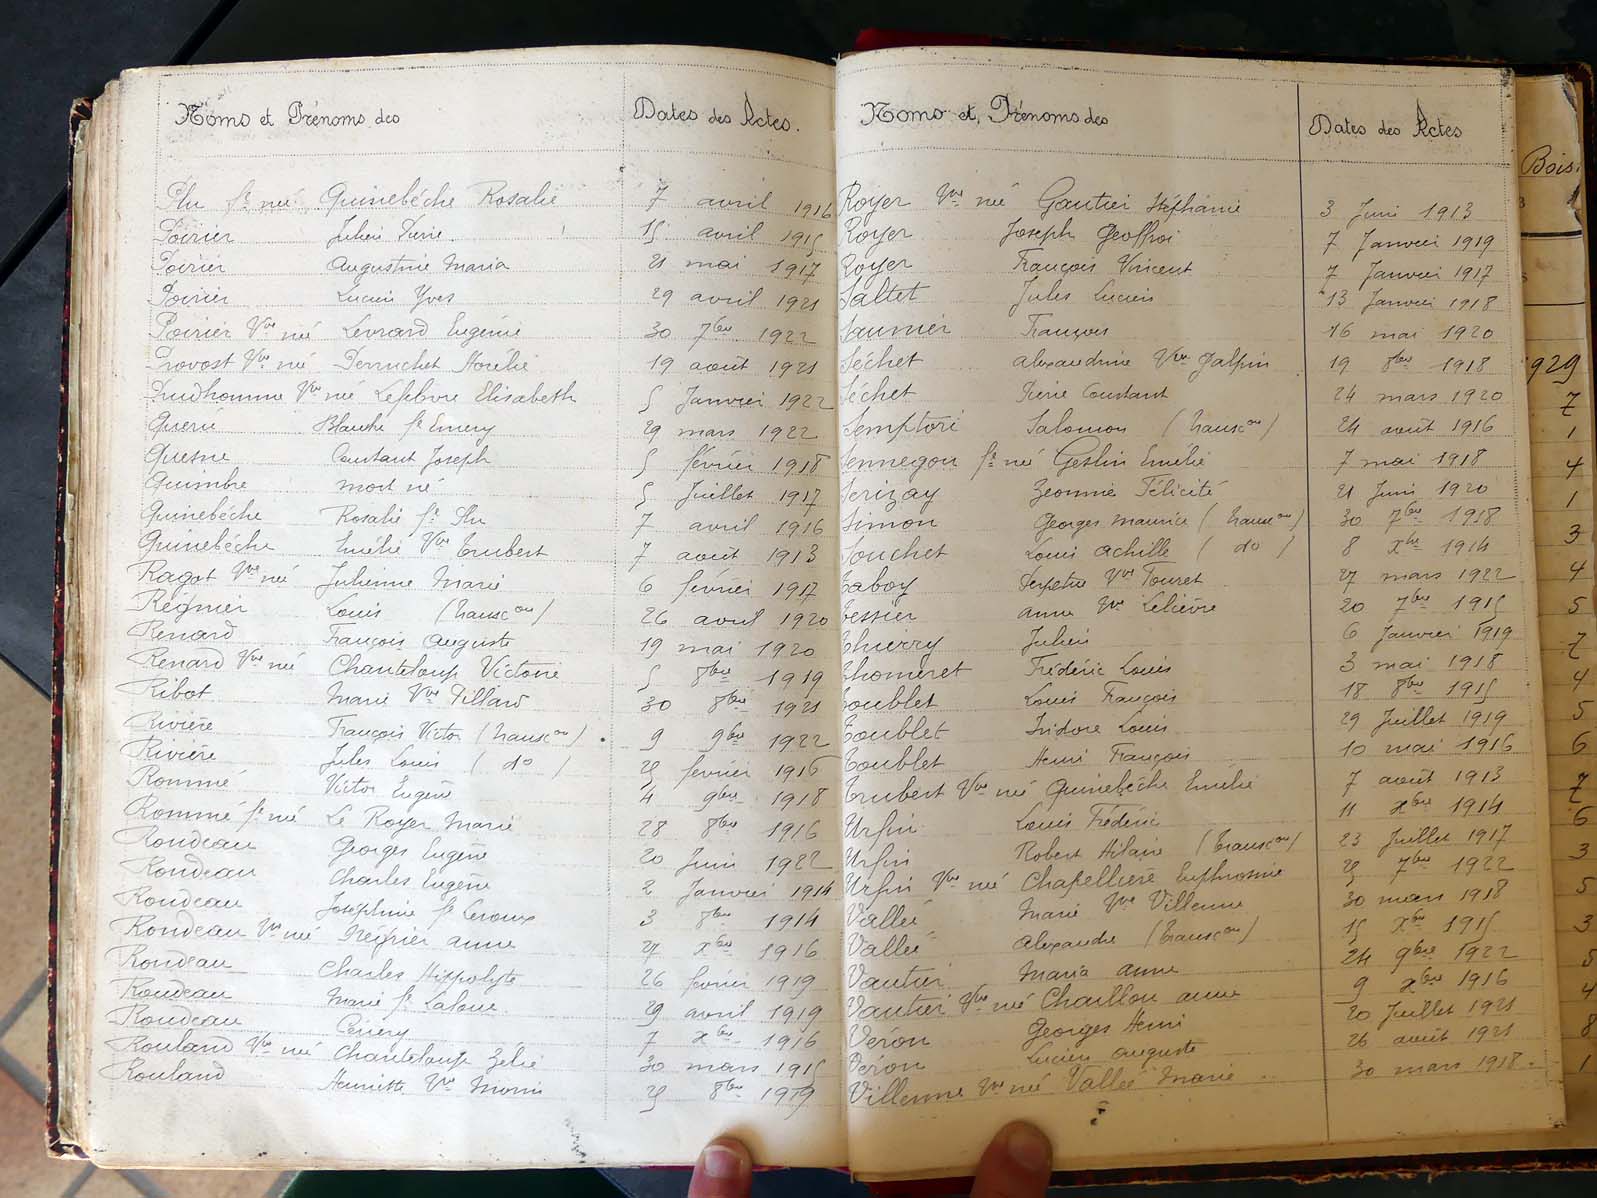 Noms et Prénoms des
Dates des Actes.
Plu fe née Quinebéche Rosalie 7 avril 1916
Poirier Julien Pierre 15 avril 1915
Poirier Augustine Maria 21 mai 1917
Poirier Lucien Yves 29 avril 1921
Poirier Vve née Levrard Eugénie 30 7bre 1922
Provost Vve née Derruchet Aurélie 19 août 1921
Prudhomme Vve née Lefebvre Elisabeth 5 Janvier 1922
Quérié Blanche fe Emery 29 mars 1922
Quesne Constant Joseph 5 février 1918
Quimbre mort né 5 Juillet 1917
Quinebéche Rosalie fe Plu 7 avril 1916
Quinebéche Emélie Vve Trubert 7 août 1913
Ragot Vve née Julienne Marie 6 février 1917
Régnier Louis (transcon) 26 avril 1920
Renard François Auguste 19 mai 1920
Renard Vve née Chanteloup Victoire 5 8bre 1919
Ribot Marie Vve Pillard 30 8bre 1921
Rivière François Victor (transcon) 9 9bre 1922
Rivière Jules Louis (do) 25 février 1916
Rommé Victor Eugène 4 9bre 1918
Rommé fe née Le Royer Marie 28 8bre 1916
Rondeau Georges Eugène 20 Juin 1922
Rondeau Charles Eugène 2 Janvier 1914
Rondeau Joséphine fe Leroux 3 8bre 1914
Rondeau Vve née Régnier anne 27 xbre 1916
Rondeau Charles Hippolyte 26 février 1919
Rondeau Marie fe 29 avril 1919
Rondeau 7 xbre 1916
Rouland Vve née Chanteloup Zélie 30 mars 1915
Rouland Henriette Vve Morin 25 8bre 1919
Noms et Prénoms des
Dates des Actes
Royer Vve née Gautier Stéphanie 3 Juin 1913
Royer Joseph Geoffroi 7 Janvier 1919
Royer François Vincent 7 Janvier 1917
Saltet Jules Lucien 13 Janvier 1918
Saumier François 16 mai 1920
Séchet alexandrine Vve Galpin 19 8bre 1918
Séchet Pierre Constant 24 mars 1920
Semptori Salomon (transcon) 24 août 1916
Sennegon fe née Geslin Emélie 7 mai 1918
Serizay Zéonnie Félicité 21 Juin 1920
Simon Georges Maurice (transcon) 30 7bre 1918
Souchet Louis Achille (do) 8 xbre 1914
Taboy Perpétue Vve Touret 27 mars 1922
Tessier anne Vve Lelièvre 20 7bre 1915
Thierry Julien 6 Janvier 1919
Thomeret Frédéric Louis 3 mai 1918
Toublet Louis François 18 8bre 1915
Toublet Isidore Louis 29 Juillet 1919
Toublet Henri François 10 mai 1916
Trubert Vve née Quinebéche Emélie 7 août 1913
Urfin Louis Frédéric 11 xbre 1914
Urfin Robert Hilaire (transcon) 23 Juillet 1917
Urfin Vve née Chapellière Euphrosine 25 7bre 1922
Vallée Marie Vve Villemme 30 mars 1918
Vallée alexandre (transcon) 15 xbre 1915
Vautier Maria anne 24 9bre 1922
Vautier Vve née Chaillou anne 9 xbre 1916
Véron Georges Henri 20 Juillet 1921
Véron Lucien auguste 26 août 1921
Villemme Vve née Vallée Marie 30 mars 1918
Bois
929
7
1
4
1
3
4
5
7
4
5
6
7
6
3
5
3
5
4
8
1